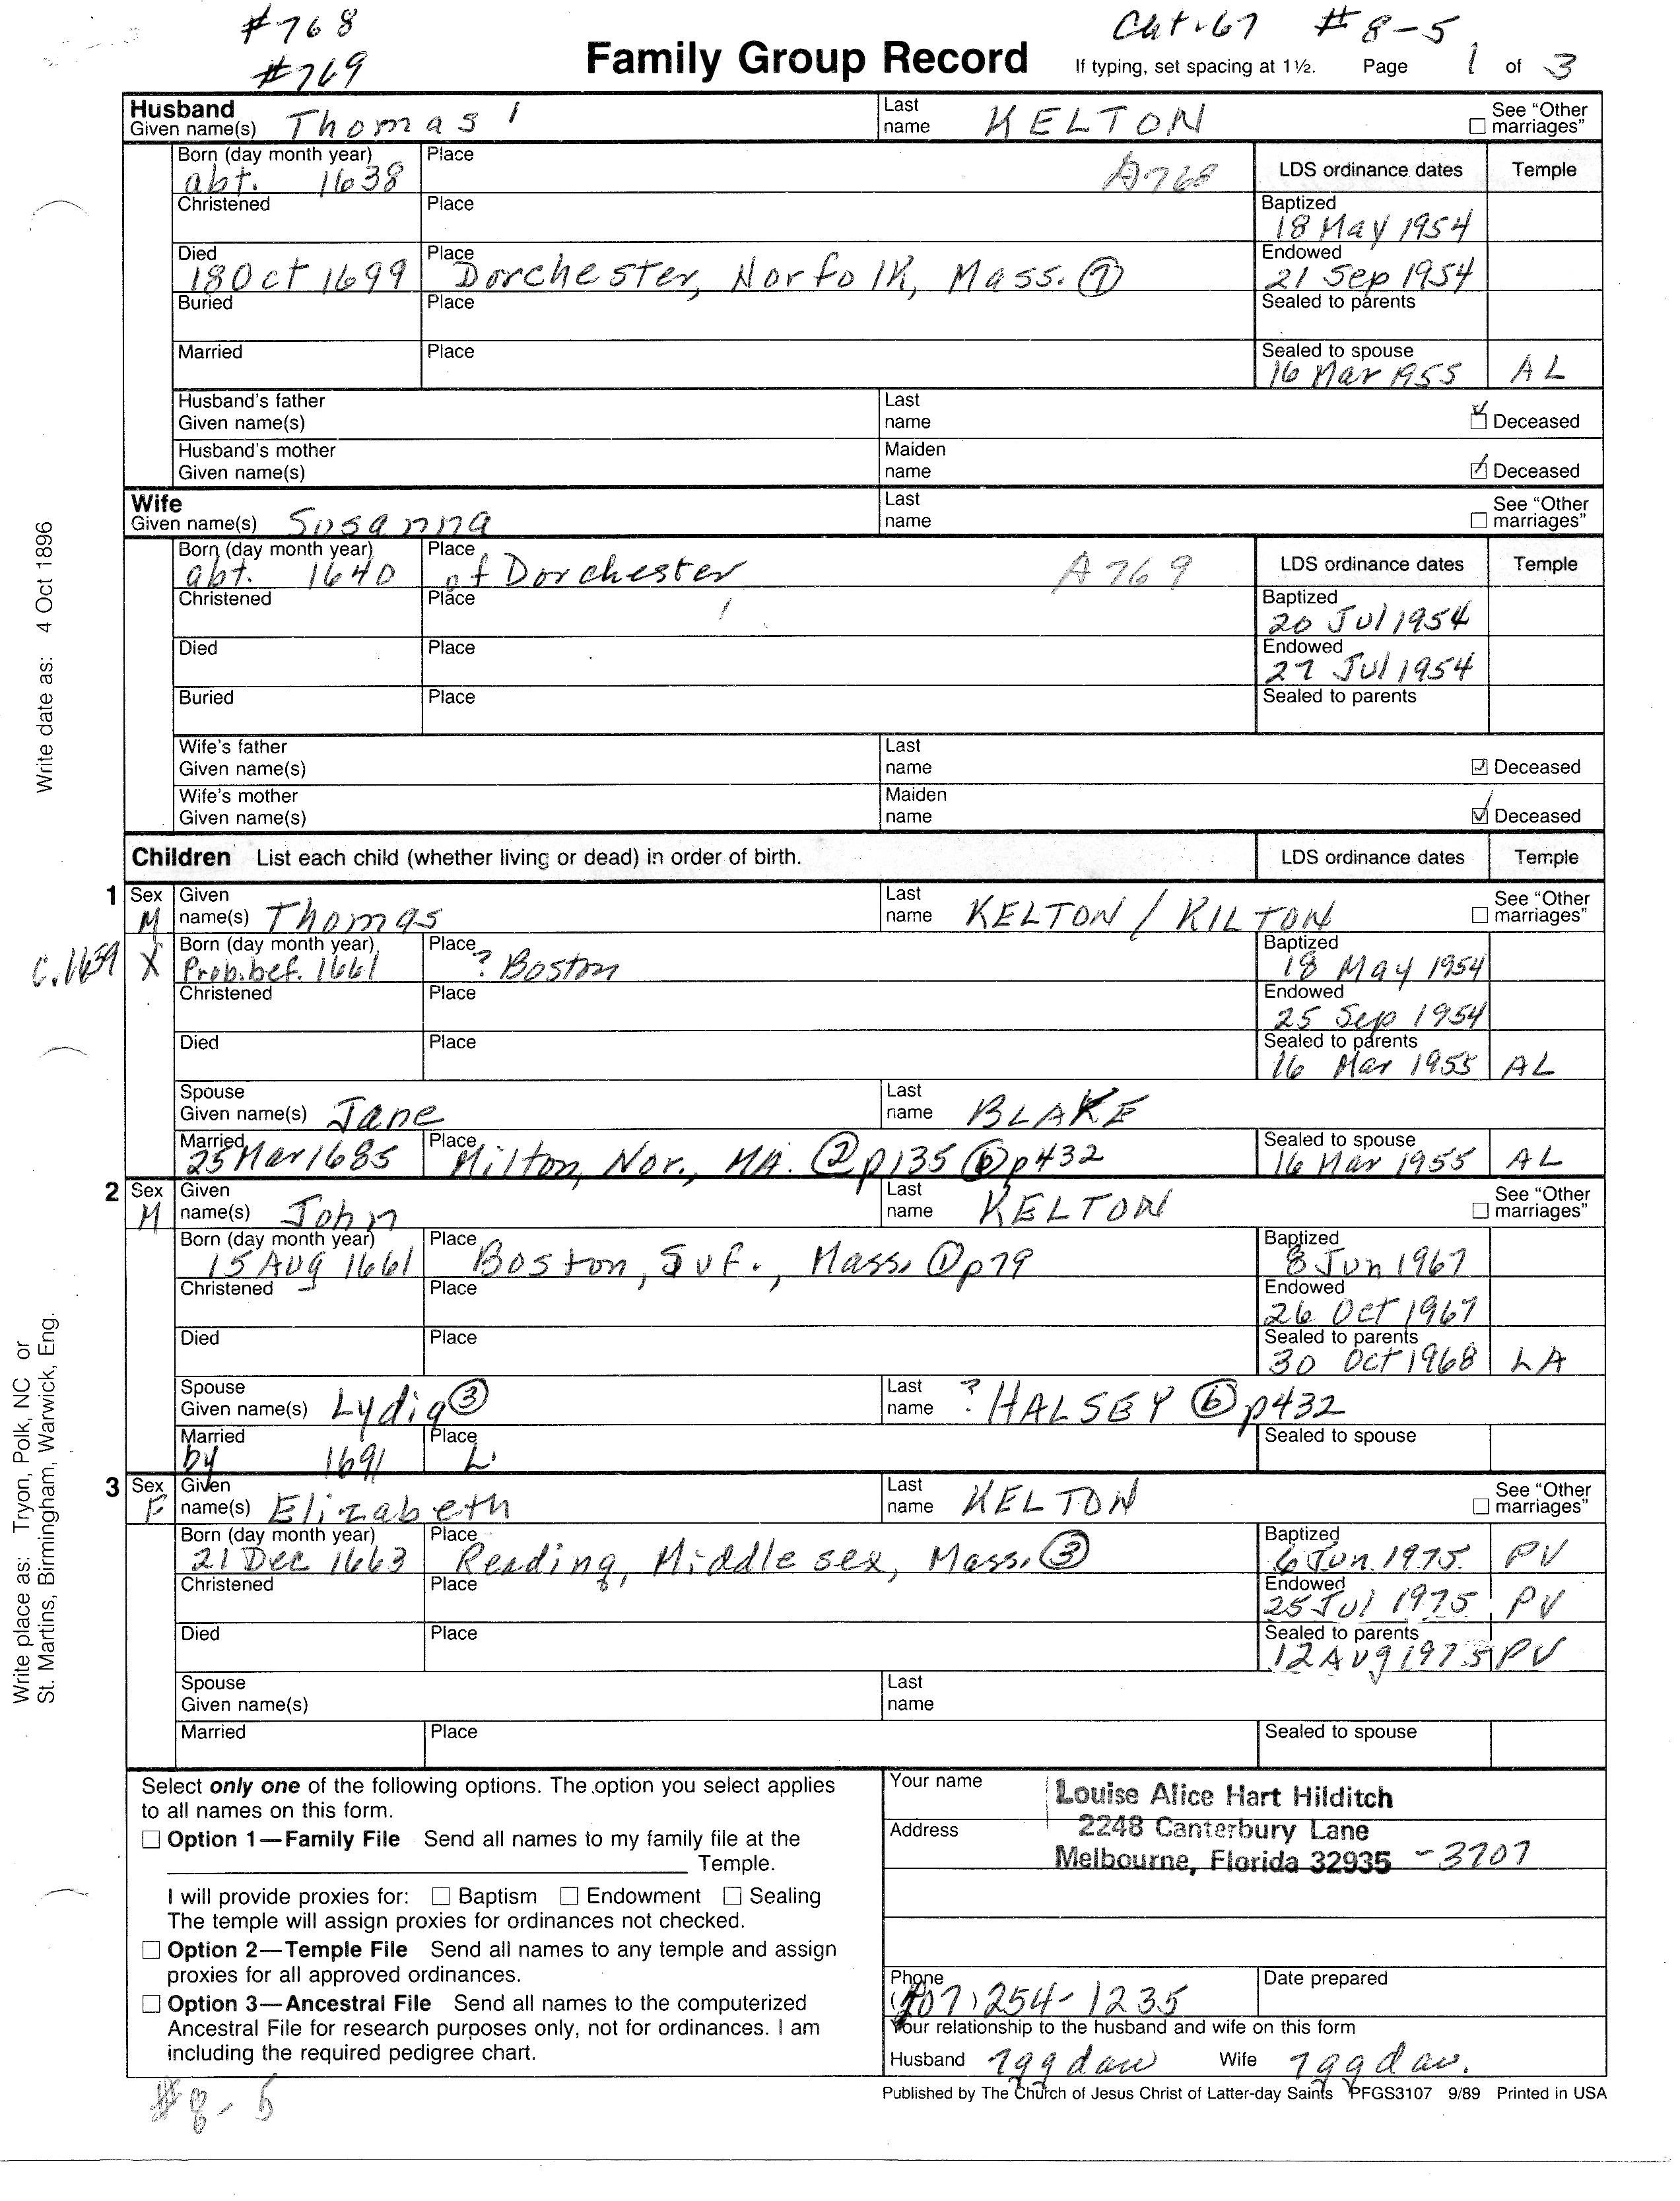 #768
Cht. 67 #8-5
#769
Family Group Record If typing, set spacing at 1½. Page 1 of 3
Husband
Given name(s) Thomas 1 Last name KELTON See "Other marriages"
Born (day month year) abt. 1638 Place A768 LDS ordinance dates Temple
Christened Place Baptized 18 May 1954
Died 18 Oct 1699 Place Dorchester, Norfolk, Mass. Endowed 21 Sep 1954
Buried Place Sealed to parents
Married Place Sealed to spouse 16 Mar 1955 AL
Husband's father Given name(s) Last name Deceased
Husband's mother Given name(s) Maiden name Deceased
Wife
Given name(s) Susanna Last name See "Other marriages"
Born (day month year) abt. 1640 Place of Dorchester A769 LDS ordinance dates Temple
Christened Place Baptized 20 Jul 1954
Died Place Endowed 27 Jul 1954
Buried Place Sealed to parents
Wife's father Given name(s) Last name Deceased
Wife's mother Given name(s) Maiden name Deceased
Children List each child (whether living or dead) in order of birth. LDS ordinance dates Temple
1 Sex M Given name(s) Thomas Last name KELTON / KILTON See "Other marriages"
C.1659 X Born (day month year) Prob. bef. 1661 Place ? Boston Baptized 18 May 1954
Christened Place Endowed 25 Sep 1954
Died Place Sealed to parents 16 Mar 1955 AL
Spouse Given name(s) Jane Last name BLAKE
Married 25 Mar 1685 Place Milton, Nor., MA. ② p135 ⑥ p432 Sealed to spouse 16 Mar 1955 AL
2 Sex M Given name(s) John Last name KELTON See "Other marriages"
Born (day month year) 15 Aug 1661 Place Boston, Suf., Mass. ① p79 Baptized 8 Jun 1967
Christened Place Endowed 26 Oct 1967
Died Place Sealed to parents 30 Oct 1968 LA
Spouse Given name(s) Lydia ③ Last name ? HALSEY ⑥ p432
Married by 1691 Place L. Sealed to spouse
3 Sex F Given name(s) Elizabeth Last name KELTON See "Other marriages"
Born (day month year) 21 Dec 1663 Place Reading, Middlesex, Mass. ③ Baptized 6 Jun 1975 PV
Christened Place Endowed 25 Jul 1975 PV
Died Place Sealed to parents 12 Aug 1975 PV
Spouse Given name(s) Last name
Married Place Sealed to spouse
Write date as: 4 Oct 1896
Write place as: Tryon, Polk, NC or
St. Martins, Birmingham, Warwick, Eng.
Select only one of the following options. The option you select applies
to all names on this form.
Option 1—Family File Send all names to my family file at the
Temple.
I will provide proxies for: Baptism Endowment Sealing
The temple will assign proxies for ordinances not checked.
Option 2—Temple File Send all names to any temple and assign
proxies for all approved ordinances.
Option 3—Ancestral File Send all names to the computerized
Ancestral File for research purposes only, not for ordinances. I am
including the required pedigree chart.
Your name Louise Alice Hart Hilditch
Address 2248 Canterbury Lane
Melbourne, Florida 32935 -3707
Phone (407) 254-1235 Date prepared
Your relationship to the husband and wife on this form
Husband 7ggdau Wife 7ggdau.
Published by The Church of Jesus Christ of Latter-day Saints PFGS3107 9/89 Printed in USA
#8-5